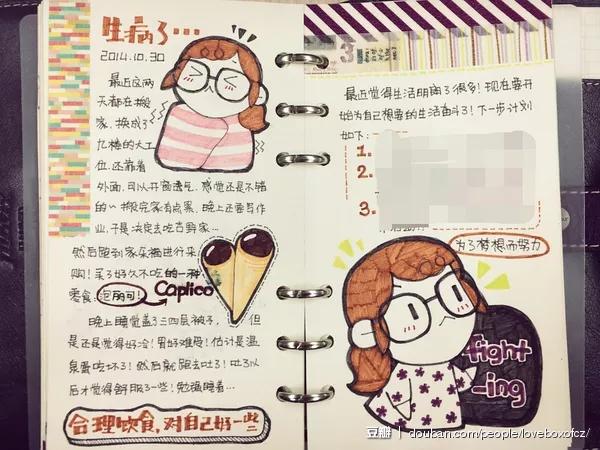 生病了…
2014.10.30
最近这两
天都在搬
家，换成了
九楼的大工
位，还靠着
外面，可以开窗透气，感觉还是不错
的～搬完家有点累，晚上还要写作
业，于是决定去吃吉野家…
然后跑到家乐福进行采
购！买了好久不吃的一种
零食：
Caplico
晚上睡觉盖了三四层被子，但
是还是觉得好冷！胃好难受！估计是温
泉蛋吃坏了！然后就跑去吐了！吐了以
后才觉得舒服了一些！勉强睡着…
合理饮食，对自己好一些
最近觉得生活明朗了很多！现在要开
始为自己想要的生活奋斗了！下一步计划
如下：
1.
2.
3.
为了梦想而努力
fight
-ing
豆瓣 | douban.com/people/loveboxofcz/